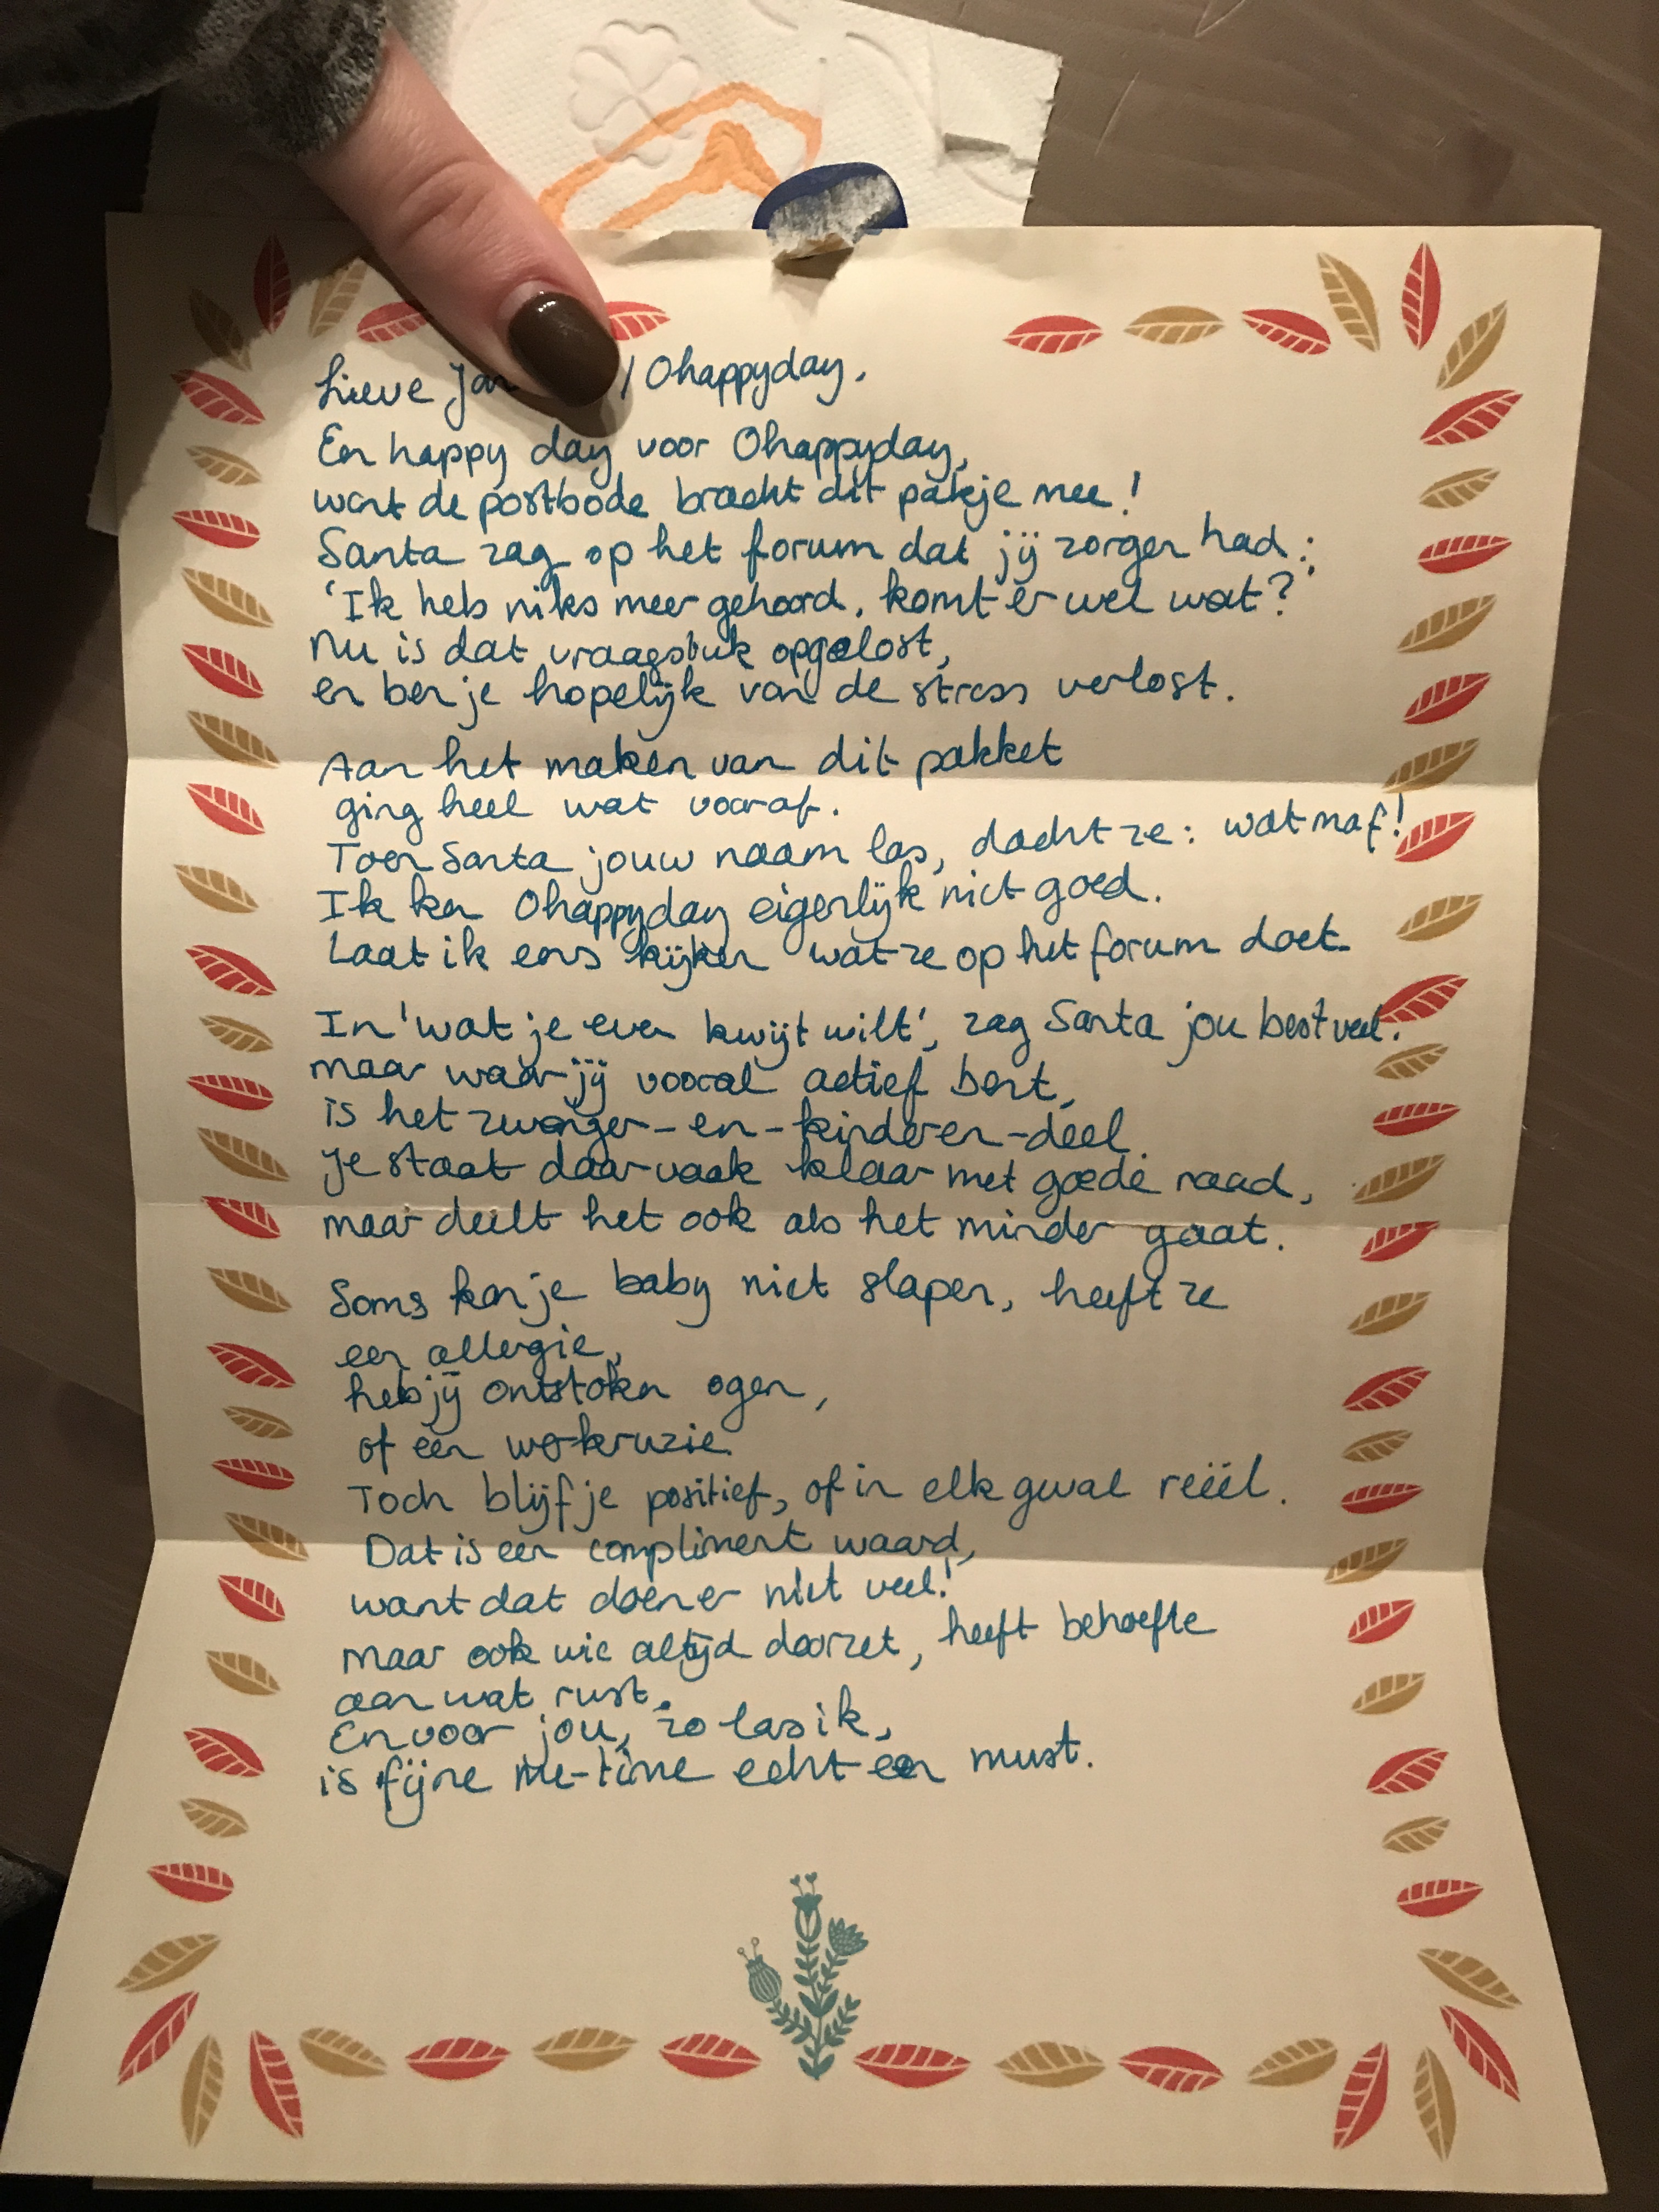 Lieve Jan / Ohappyday,
Een happy day voor Ohappyday,
want de postbode bracht dit pakje mee!
Santa zag op het forum dat jij zorgen had:
'Ik heb niks meer gehoord, komt er wel wat?'
Nu is dat vraagstuk opgelost,
en ben je hopelijk van de stress verlost.
Aan het maken van dit pakket
ging heel wat vooraf.
Toen Santa jouw naam las, dacht ze: wat maf!
Ik ken Ohappyday eigenlijk niet goed.
Laat ik eens kijken wat ze op het forum doet.
In 'wat je even kwijt wilt', zag Santa jou best veel.
maar waar jij vooral actief bent,
is het zwanger-en-kinderen-deel.
Je staat daar vaak klaar met goede raad,
maar deelt het ook als het minder gaat.
Soms kan je baby niet slapen, heeft ze
een allergie,
heb jij ontstoken ogen,
of een werkruzie.
Toch blijf je positief, of in elk geval reëel.
Dat is een compliment waard,
want dat doen er niet veel!
Maar ook wie altijd doorzet, heeft behoefte
aan wat rust.
En voor jou, zo las ik,
is fijne me-time echt een must.